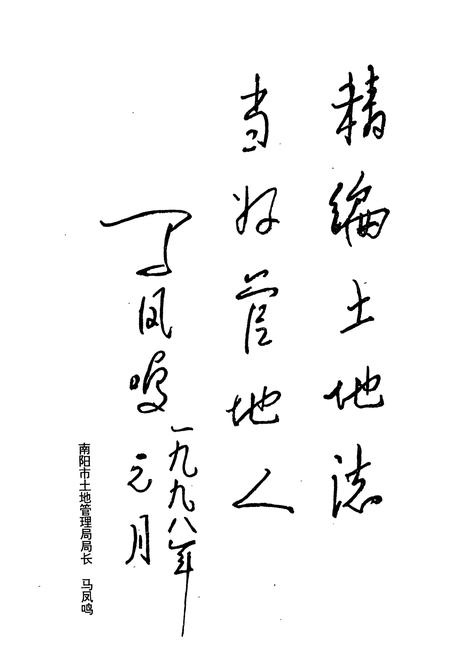 精编土地志
当好管地人
马凤鸣
一九九八年
元月
南阳市土地管理局局长 马凤鸣